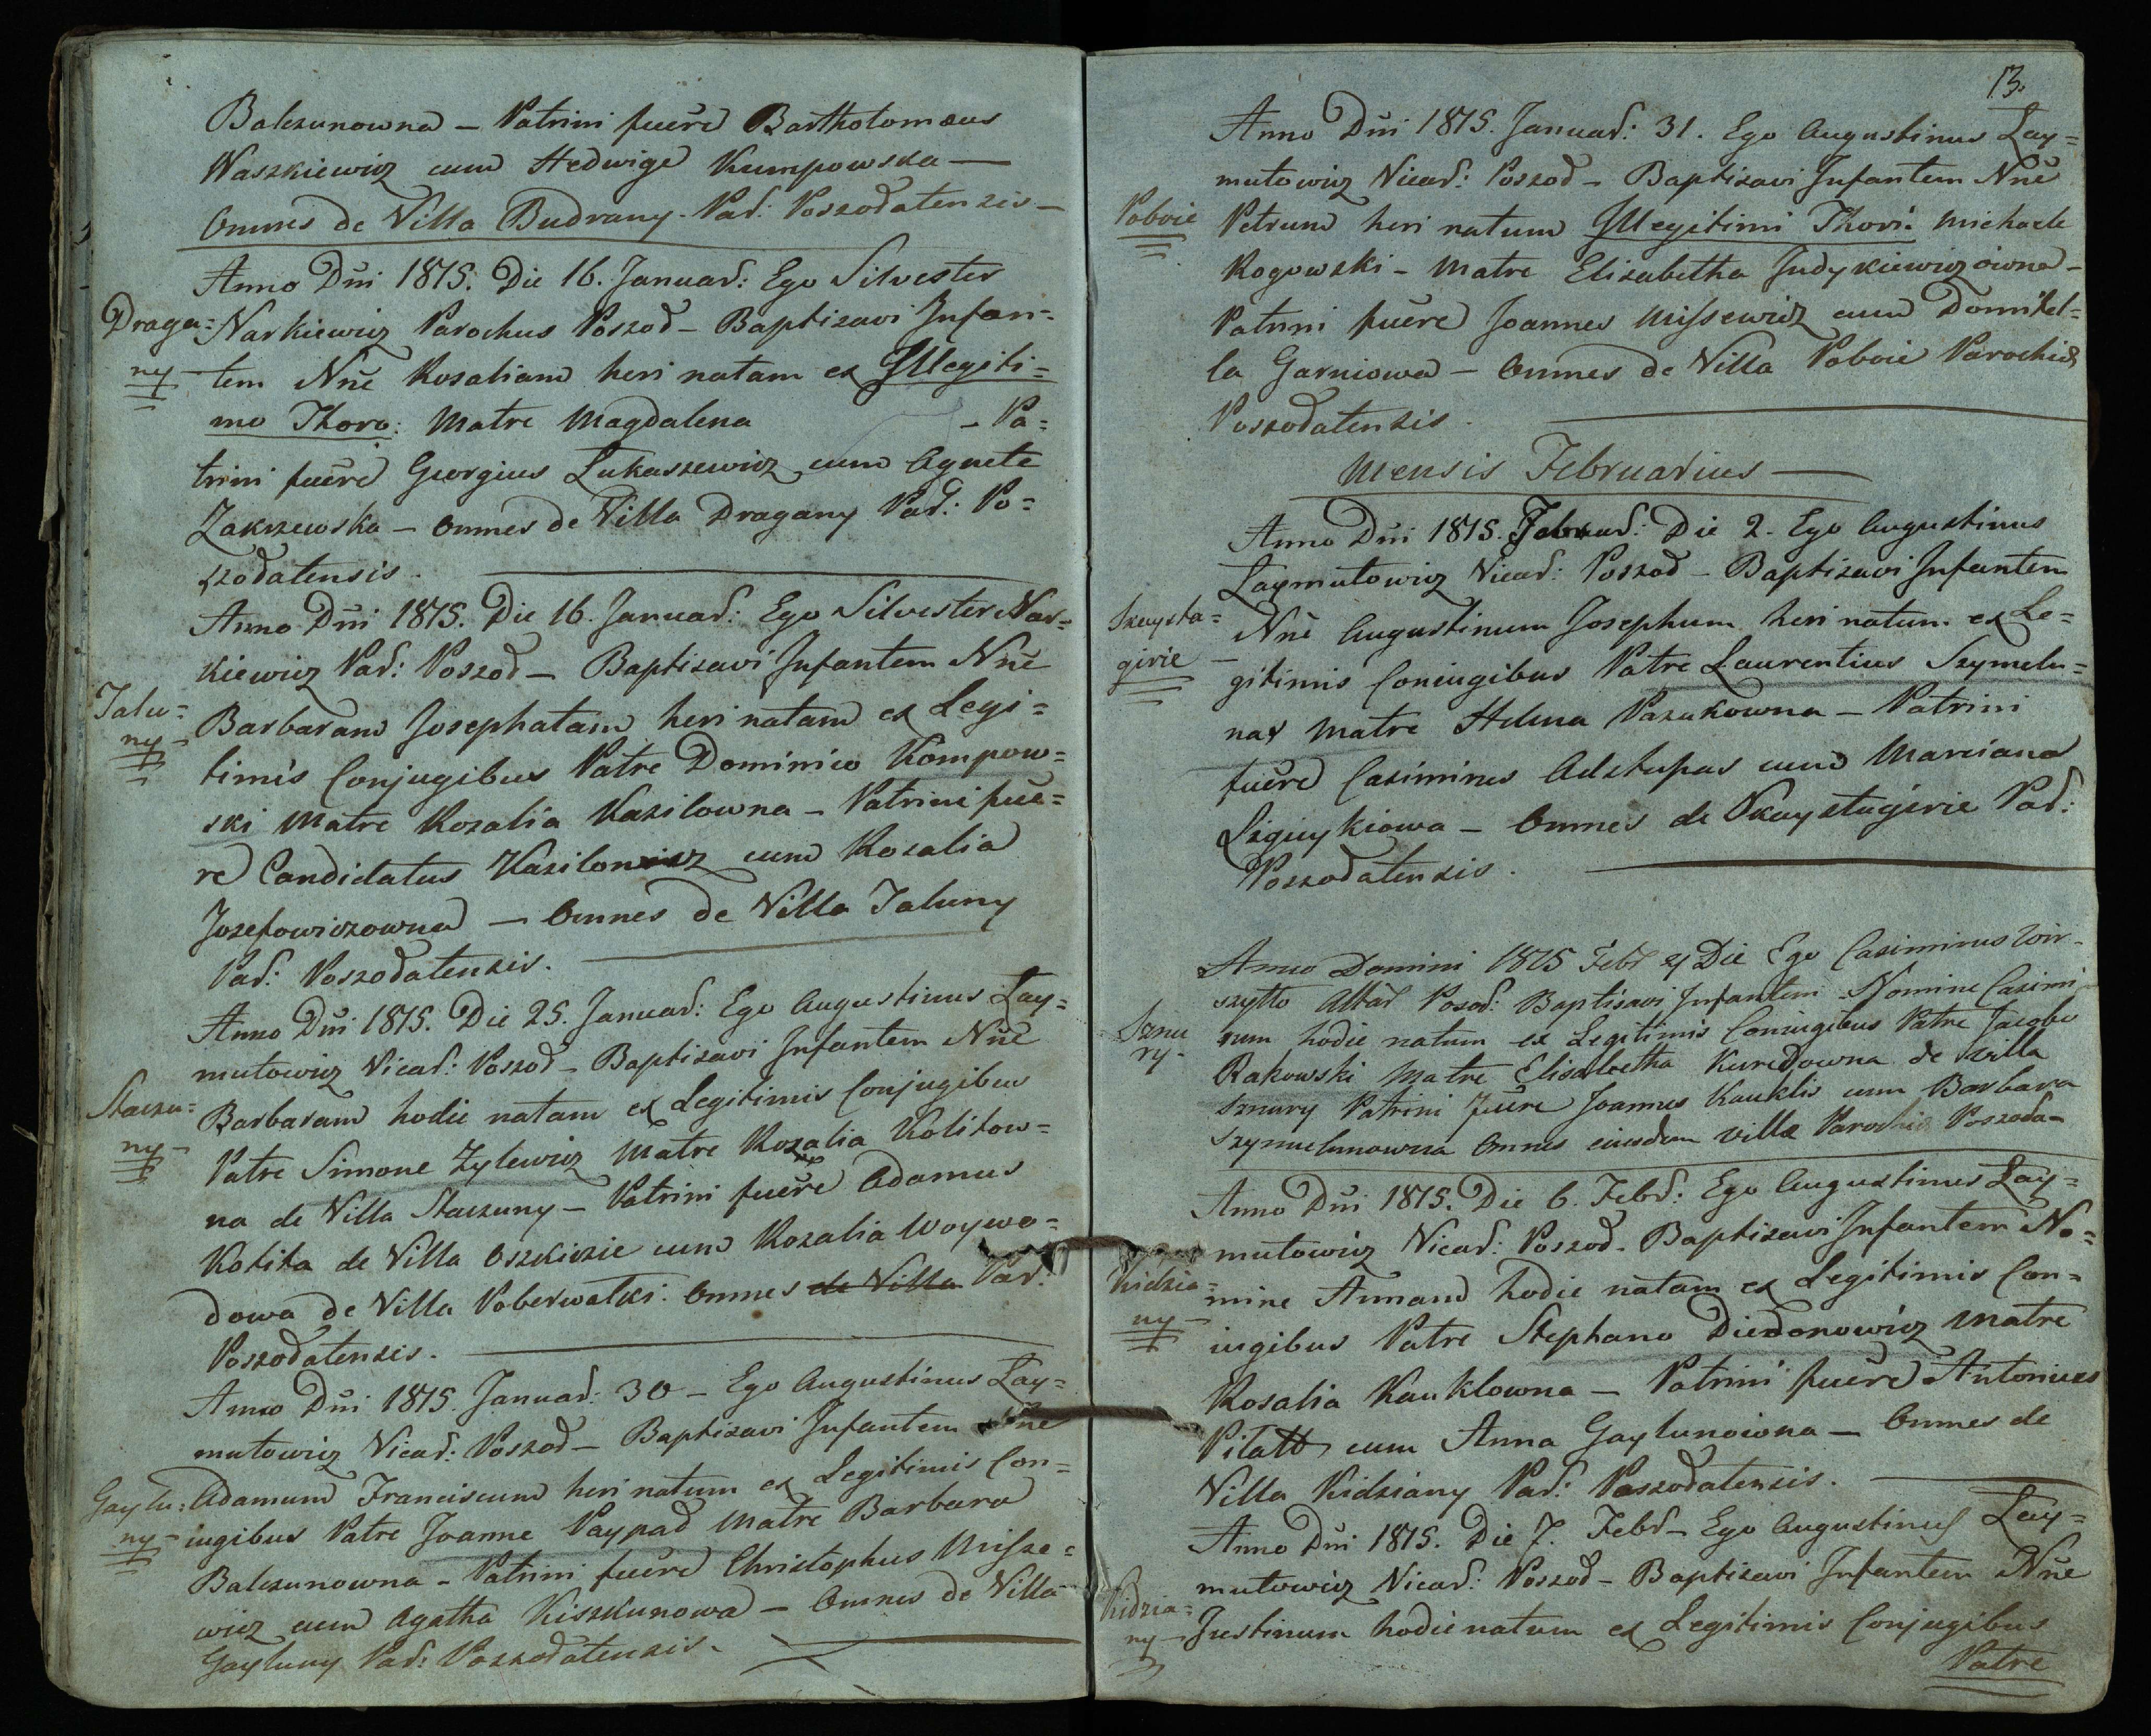 Balczunowna – Patrini fuêre Bartholomæus
Waszkiewicz cum Hedwige Kumpowska –
Omnes de Villa Budrany. Par: Poszodatensis –
Anno Dñi 1815. Die 16. Januar: Ego Silvester
Draga= Narkiewicz Parochus Poszod – Baptisavi Infan=
ny – tem Nñe Rosaliam heri natam ex Illegiti=
mo Thoro: Matre Magdalena – Pa=
trini fuêre Georgius Łukaszewicz cum Agnete
Zakrzewska – Omnes de Villa Dragany Par: Po=
szodatensis.
Anno Dñi 1815. Die 16. Januar: Ego Silvester Nar=
kiewicz Par: Poszod – Baptisavi Infantem Nñe
Jalu= Barbaram Josephatam heri natam ex Legi=
ny – timis Conjugibus Patre Dominico Kompow=
ski Matre Rozalia Kazilowna – Patrini fuê=
re Candidatus Kazilowicz cum Rozalia
Josefowiczowna – Omnes de Villa Jaluny
Par: Poszodatensis.
Anno Dñi 1815. Die 25. Januar: Ego Augustinus Łay=
mutowicz Vicar: Poszod – Baptisavi Infantem Nñe
Staczu= Barbaram hodie natam ex Legitimis Conjugibus
ny – Patre Simone Zylewicz Matre Rozalia Kolitow=
na de Villa Staczuny – Patrini fuêre Adamus
Kolita de Villa Oszkicie cum Rozalia Woywo=
dowa de Villa Poberwałki. Omnes de Villa Par:
Poszodatensis.
Anno Dñi 1815. Januar: 30 – Ego Augustinus Łay=
mutowicz Vicar: Poszod – Baptisavi Infantem Nñe
Gaylu= Adamum Franciscum heri natum ex Legitimis Con=
ny – iugibus Patre Joanne Paypad Matre Barbara
Balczunowna – Patrini fuêre Christophus Missze=
wicz cum Agatha Kiszkunowa – Omnes de Villa
Gayluny Par: Poszodatensis.
13.
Anno Dñi 1815. Januar: 31. Ego Augustinus Łay=
mutowicz Vicar: Poszod – Baptisavi Infantem Nñe
Poboie Petrum heri natum Illegitimi Thori. Michaele
Rogowski – Matre Elisabetha Judykiewiczówna –
Patrini fuêre Joannes Missewicz cum Domicel=
la Garniowa – Omnes de Villa Poboie Parochiæ
Poszodatensis.
Mensis Februarius
Anno Dñi 1815. Februar: Die 2. Ego Augustinus
Łaymutowicz Vicar: Poszod – Baptisavi Infantem
Szaysta= Nñe Augustinum Josephum heri natum ex Le=
girie – gitimis Coniugibus Patre Laurentius Szymelu=
nas Matre Helena Pazukowna – Patrini
fuêre Casimirus Adstupas cum Marciana
Omnes de Par:
Poszodatensis.
Anno Domini 1815 Febr Die Ego Casimirus Woy-
szytło Altar Posod: Baptisavi Infantem Nomine Casimi
Sznu rum hodie natum ex Legitimis Coniugibus Patre Jacobo
ry – Rakowski Matre Elisabetha Kuredowna de villa
Sznury Patrini fuêre Joannes Kauklis cum Barbara
Szymelunowna Omnes eiusdem villæ Parochiæ Poszoda-
Anno Dñi 1815. Die 6. Febr: Ego Augustinus Łay=
mutowicz Vicar: Poszod. Baptisavi Infantem No=
Kidzia= mine Annam hodie natam ex Legitimis Con=
ny – iugibus Patre Stephano Diedonowicz Matre
Rosalia Kauklowna – Patrini fuêre Antonius
Piłatt cum Anna Gaylunowna – Omnes de
Villa Kidziany Par: Poszodatensis.
Anno Dñi 1815. Die 7. Febr – Ego Augustinus Łay=
mutowicz Vicar: Poszod – Baptisavi Infantem Nñe
Kidzia= Justinum hodie natum ex Legitimis Conjugibus
ny – Patre